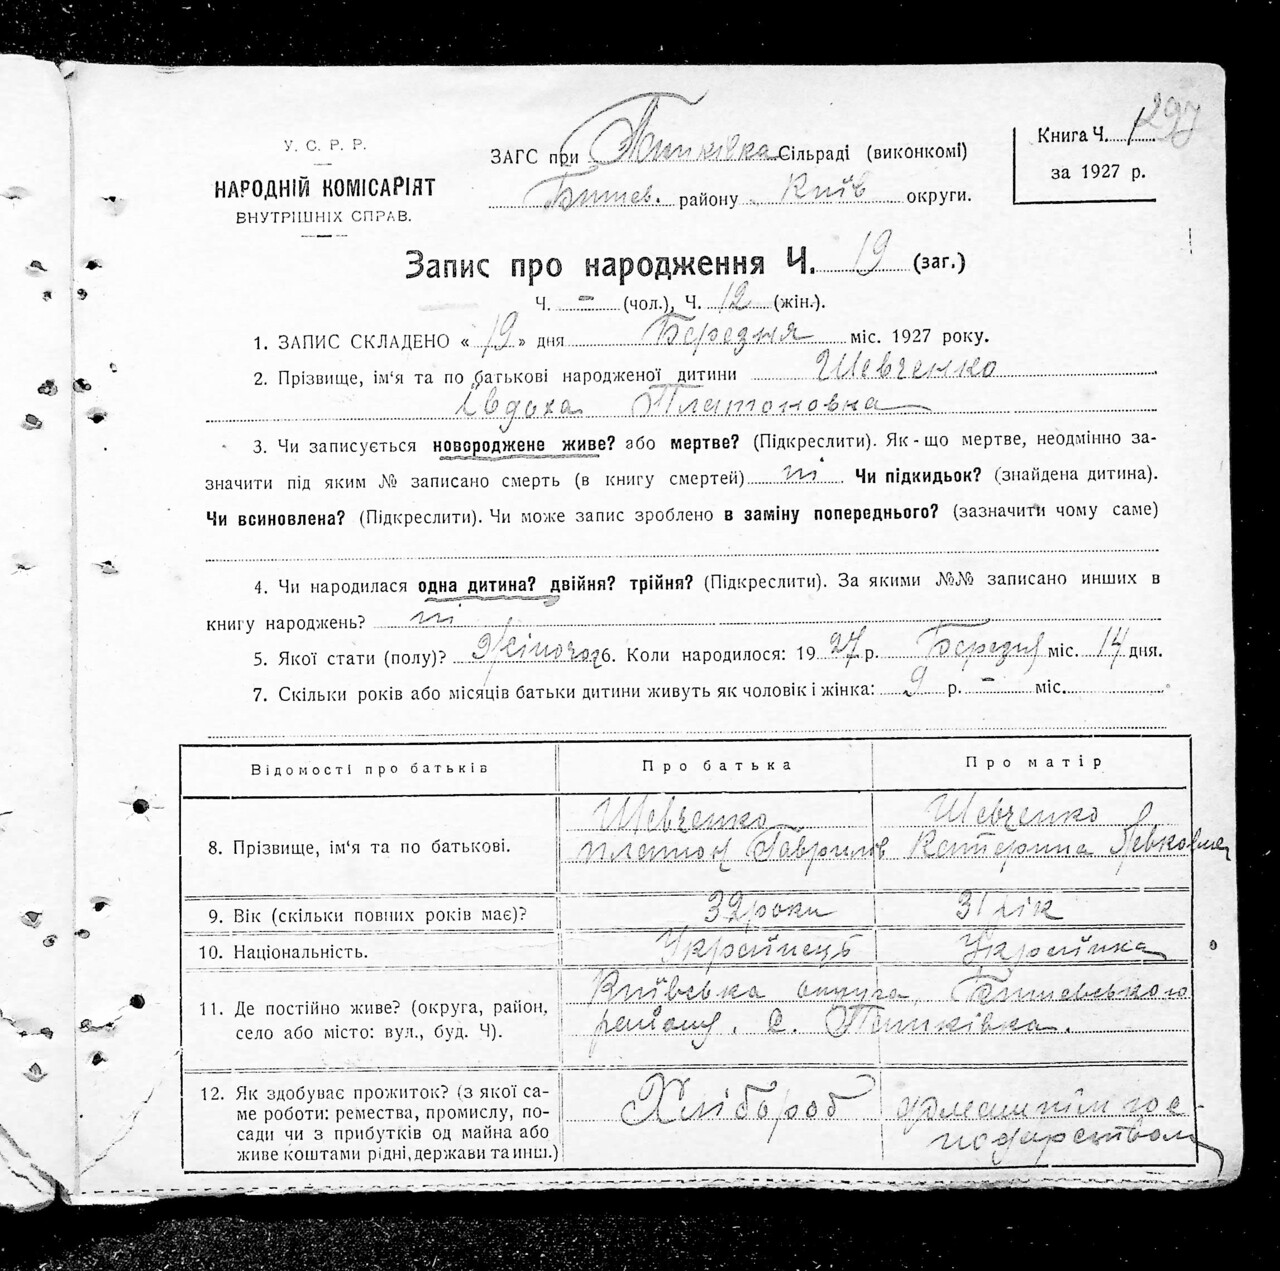 297
У. С. Р. Р.
НАРОДНІЙ КОМІСАРІЯТ
ВНУТРІШНІХ СПРАВ.
ЗАГС при Пашківка Сільраді (виконкомі)
Бишев. району Київ округи.
Книга Ч. 1
за 1927 р.
Запис про народження Ч. 19 (заг.)
Ч. - (чол.), Ч. 12 (жін.).
1. ЗАПИС СКЛАДЕНО « 19 » дня Березня міс. 1927 року.
2. Прізвище, ім'я та по батькові народженої дитини Шевченко
Євдоха Платоновна
3. Чи записується новороджене живе? або мертве? (Підкреслити). Як-що мертве, неодмінно за-
значити під яким № записано смерть (в книгу смертей) ні Чи підкидьок? (знайдена дитина).
Чи всиновлена? (Підкреслити). Чи може запис зроблено в заміну попереднього? (зазначити чому саме)
4. Чи народилася одна дитина? двійня? трійня? (Підкреслити). За якими №№ записано инших в
книгу народжень? ні
5. Якої стати (полу)? Жіночої 6. Коли народилося: 1927 р. Березня міс. 14 дня.
7. Скільки років або місяців батьки дитини живуть як чоловік і жінка: 9 р. - міс.
Відомості про батьків Про батька Про матір
8. Прізвище, ім'я та по батькові. Шевченко Платон Гаврилів Шевченко Катерина
9. Вік (скільки повних років має)? 32 роки 31 рік
10. Національність. Українець Українка
11. Де постійно живе? (округа, район,
село або місто: вул., буд. Ч).
Київська округа, Бишевського
району. с. Пашківка.
12. Як здобуває прожиток? (з якої са-
ме роботи: ремества, промислу, по-
сади чи з прибутків од майна або
живе коштами рідні, держави та инш.)
Хлібороб
домашнім гос-
подарством